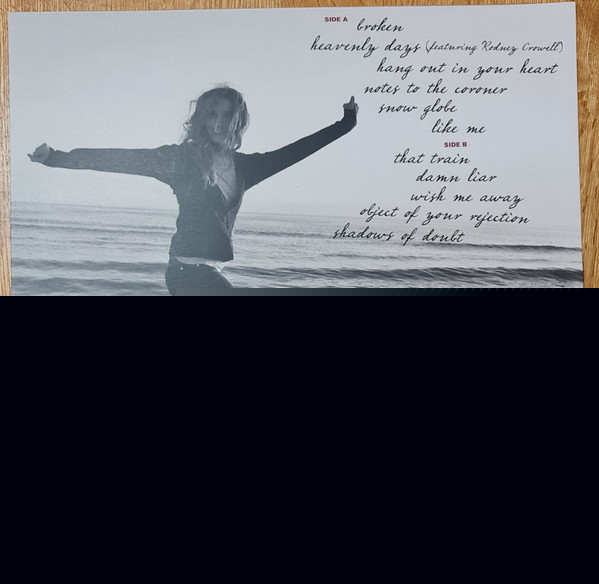 SIDE A broken
heavenly days (featuring Rodney Crowell)
hang out in your heart
notes to the coroner
snow globe
like me
SIDE B
that train
damn liar
wish me away
object of your rejection
shadows of doubt